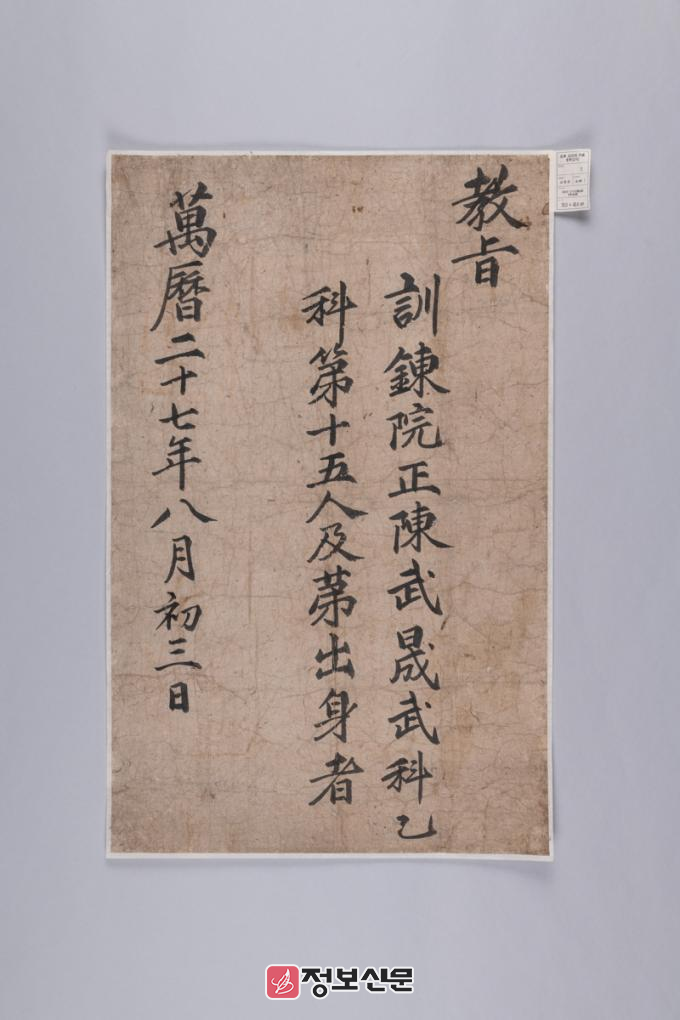 教旨
訓鍊院正陳武晟武科乙
科第十五人及苐出身者
萬曆二十七年八月初三日
정보신문